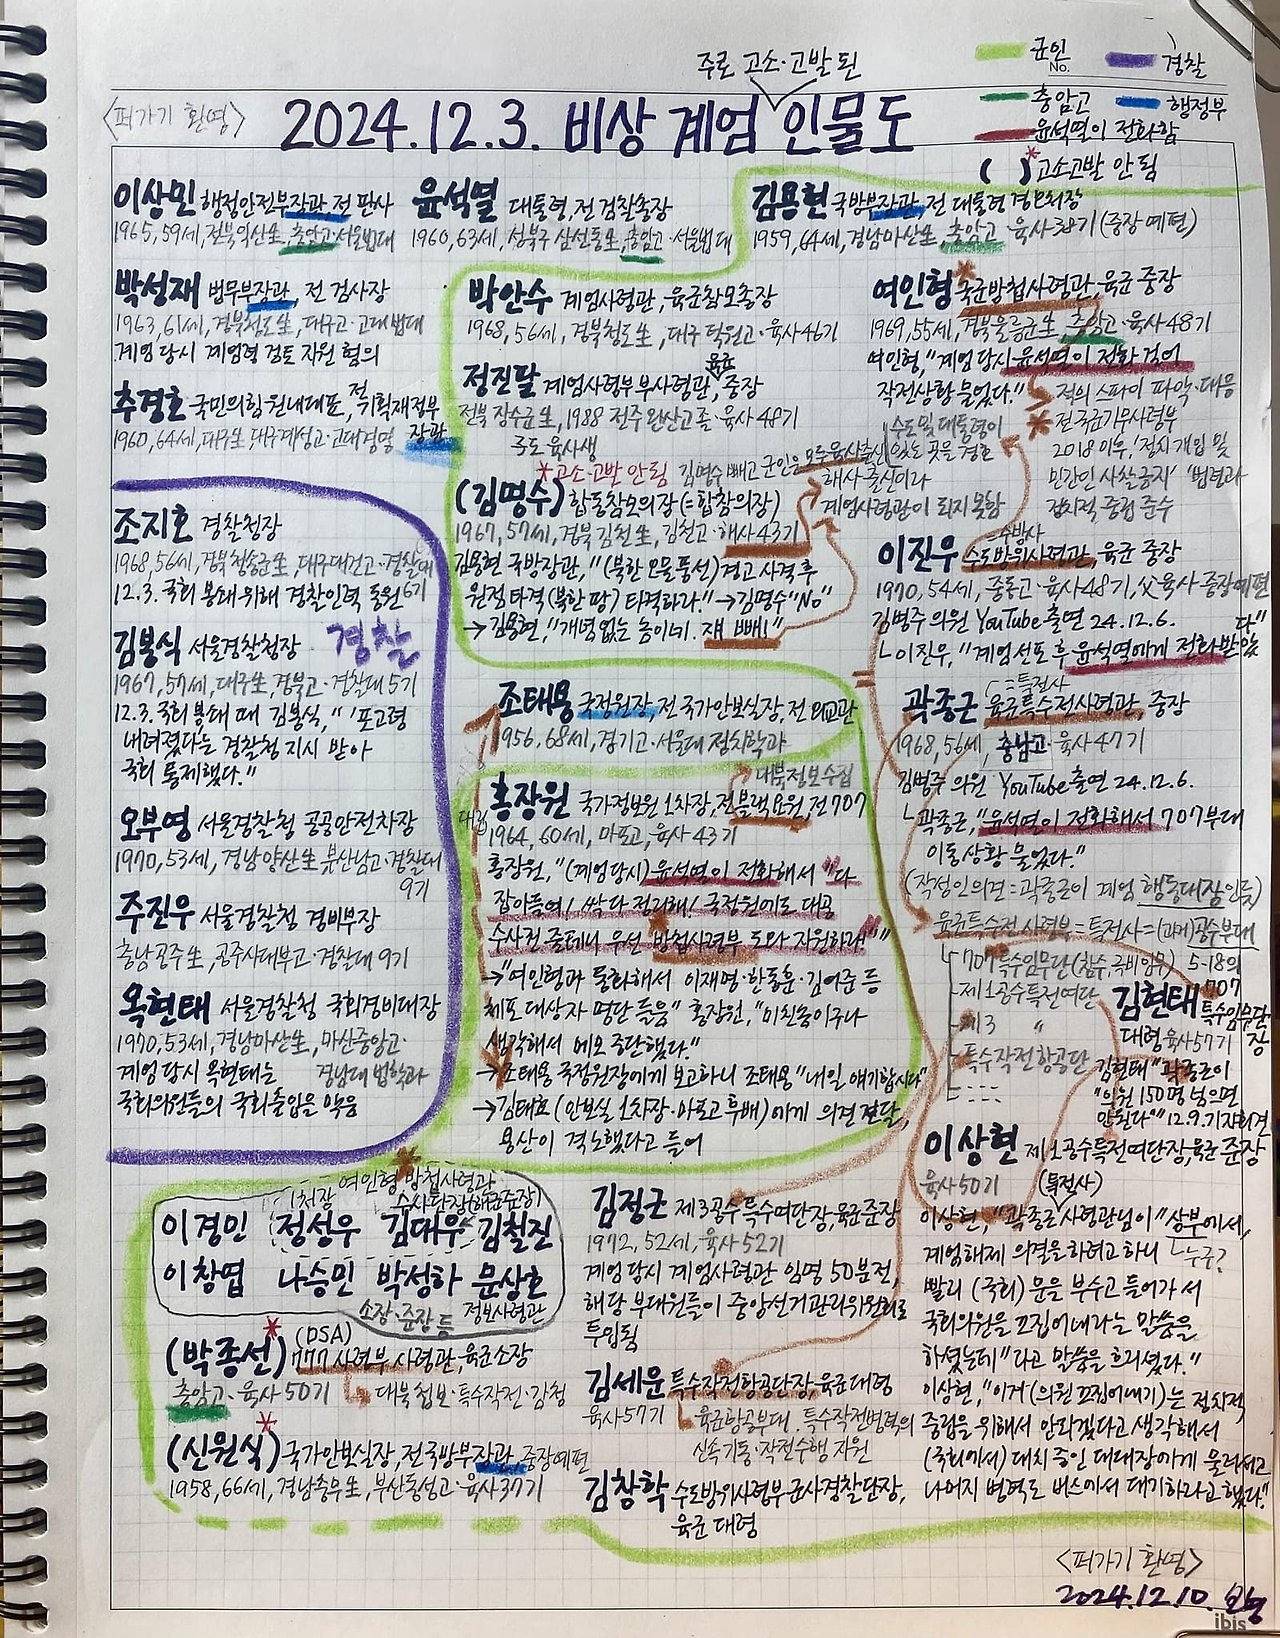 주로 고소·고발 된
군인
경찰
No.
충암고
행정부
윤석열이 전화함
( )* 고소고발 안 됨
<퍼가기 환영>
2024.12.3. 비상 계엄 인물도
이상민 행정안전부장관 전 판사
1965, 59세, 전북익산生, 충암고·서울법대
박성재 법무부장관, 전 검사장
1963, 61세, 경북청도生, 대구고·고대법대
계엄 당시 계엄령 검토 지원 혐의
추경호 국민의힘 원내대표, 전 기획재정부
장관
1960, 64세, 대구生 대구계성고·고대경영
윤석열 대통령, 전 검찰총장
1960, 63세, 성북구 삼선동生, 충암고·서울법대
김용현 국방부장관, 전 대통령 경호처장
1959, 64세, 경남마산生, 충암고·육사38기 (중장 예편)
박안수 계엄사령관, 육군참모총장
1968, 56세, 경북청도生, 대구 덕원고·육사46기
정진팔 계엄사령부 부사령관, 육군 중장
전북 장수군生, 1988 전주 완산고 졸·육사48기
*고소·고발 안 됨
김명수 빼고 군인은 모두 육사출신
(김명수) 합동참모의장 (=합참의장)
1967, 57세, 경북 김천生, 김천고·해사43기
김용현 국방장관, "(북한 오물풍선) 경고 사격 후
원점타격 (북한 땅) 타격하라." → 김명수 "No"
→ 김용현, "개념없는 놈이네. 쟤 빼!"
해사 출신이라
계엄사령관이 되지 못함
여인형* 국군방첩사령관, 육군 중장
1969, 55세, 경북울릉군生, 충암고·육사48기
여인형, "계엄 당시 윤석열이 전화 걸어
작전상황 물었다."
적의 스파이 파악·대응
* 전 국군기무사령부
2018 이후, '정치 개입 및
민간인 사찰 금지' '법령과
정치적 중립 준수
수도 및 대통령이
있는 곳을 경호
수방사
이진우 수도방위사령관, 육군 중장
1970, 54세, 중동고·육사48기, 父육사·중장예편
김병주 의원 YouTube 출연 24.12.6.
ㄴ이진우, "계엄 선포 후 윤석열에게 전화받았
다"
=특전사
곽종근 육군특수전사령관, 중장
1968, 56세, 충남고·육사47기
김병주 의원 YouTube 출연 24.12.6.
ㄴ곽종근, "윤석열이 전화해서 707부대
이동상황 물었다."
(작성인 의견 = 곽종근이 계엄 행동대장인듯)
육군특수전 사령부 = 특전사 = (과거) 공수부대
707특수임무단
제1공수특전여단
제3 〃
특수작전항공단
김현태 707
특수임무단
장
대령 육사57기
김현태 "곽종근이
"의원 150명 넘으면
안된다"" 12.9. 기자회견
조지호 경찰청장
1968, 56세, 경북청송군生, 대구대건고·경찰대
6기
12.3. 국회 봉쇄 위해 경찰인력 동원
김봉식 서울경찰청장
경찰
1967, 57세, 대구生, 경북고·경찰대 5기
12.3. 국회 봉쇄 때 김봉식, "'포고령
내려졌다'는 경찰청 지시 받아
국회 통제했다."
오부명 서울경찰청 공공안전차장
1970, 53세, 경남양산生, 부산남고·경찰대
9기
주진우 서울경찰청 경비부장
충남공주生, 공주사대부고·경찰대 9기
목현태 서울경찰청 국회경비대장
1970, 53세, 경남마산生, 마산중앙고·
경남대 법학과
계엄 당시 목현태는
국회의원들의 국회출입을 막음
조태용 국정원장, 전 국가안보실장, 전 외교관
1956, 68세, 경기고·서울대 정치학과
대북정보수집
홍장원 국가정보원 1차장, 전 블랙요원, 전 707
1964, 60세, 마포고, 육사 43기
홍장원, "(계엄당시) 윤석열이 전화해서 "다
잡아들여! 싹 다 정리해! 국정원에도 대공
수사권 줄테니 우선 방첩사령부 도와 지원하라!""
→ "여인형과 통화해서 이재명·한동훈·김어준 등
체포 대상자 명단 들음" 홍장원, "미친놈이구나
생각해서 메모 중단했다."
→ 조태용 국정원장에게 보고하니 조태용 "내일 얘기합시다"
→ 김태효 (안보실 1차장·마포고후배)에게 의견 전달,
용산이 격노했다고 들어
여인형 방첩사령관
1처장
수사단장(해군준장)
이경민 정성우 김대우 김철진
이창엽 나승민 박성하 문상호
소장·준장 등
정보사령관
(박종선)* (DSA)
777 사령부 사령관, 육군소장
충암고·육사50기
대북첩보·특수작전·감청
(신원식)* 국가안보실장, 전 국방부장관, 중장예편
1958, 66세, 경남통영生, 부산동성고·육사37기
김정근 제3공수특수여단장, 육군준장
1972, 52세, 육사52기
계엄 당시 계엄사령관 임명 50분전,
해당 부대원들이 중앙선거관리위원회로
투입됨
김세운 특수작전항공단장, 육군대령
육사57기
육군항공부대. 특수작전병력의
신속기동·작전수행 지원
김창학 수도방위사령부 군사경찰단장,
육군 대령
이상현 제1공수특전여단장, 육군 준장
육사50기 (특전사)
이상현, "곽종근 사령관님이 "상부에서,
누구?
계엄해제 의결을 하려고 하니
빨리 (국회) 문을 부수고 들어가서
국회의원을 끄집어내라는 말씀을
하셨는데"라고 말씀을 흐리셨다."
이상현, "이거 (의원 끄집어내기)는 정치적
중립을 위해서 안되겠다고 생각해서
(국회에서) 대치 중인 대대장에게 물러서고
나머지 병력도 버스에서 대기하라고 했다."
<퍼가기 환영>
2024.12.10.
ibis